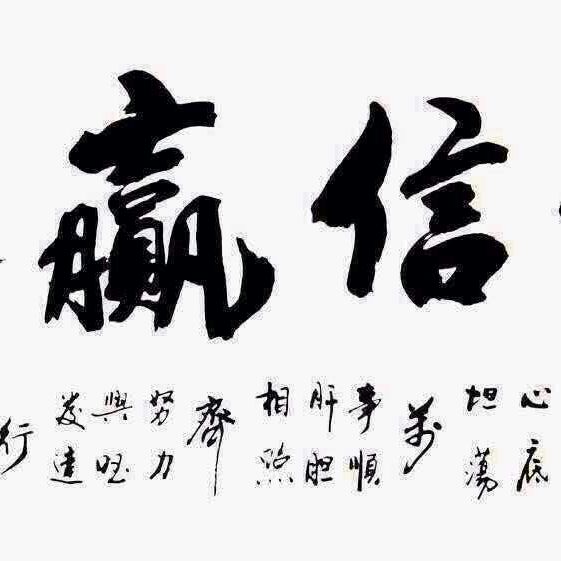 信贏
心底
坦蕩
萬
事順
肝胆
相照
齊
努力
興旺
發達
行